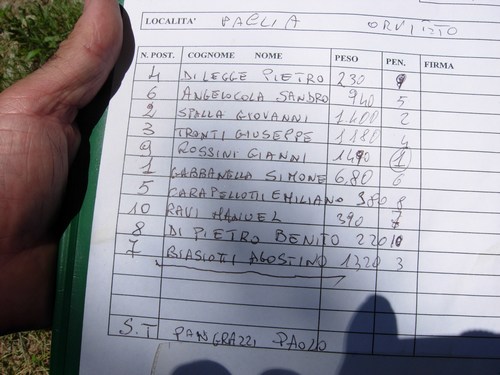 LOCALITA' PAGLIA ORVIETO
N. POST. COGNOME NOME PESO PEN. FIRMA
4 DI LEGGE PIETRO 230 9
6 ANGELOCOLA SANDRO 940 5
2 SPALLA GIOVANNI 1400 2
3 TRONTI GIUSEPPE 1180 4
9 ROSSINI GIANNI 1490 1
1 GABBANELLA SIMONE 6,80 6
5 CARAPELLOTTI EMILIANO 380 8
10 RAVI MANUEL 390 7
8 DI PIETRO BENITO 220 10
7 BIASIOTI AGOSTINO 1320 3
S.T PANGRAZZI PAOLO